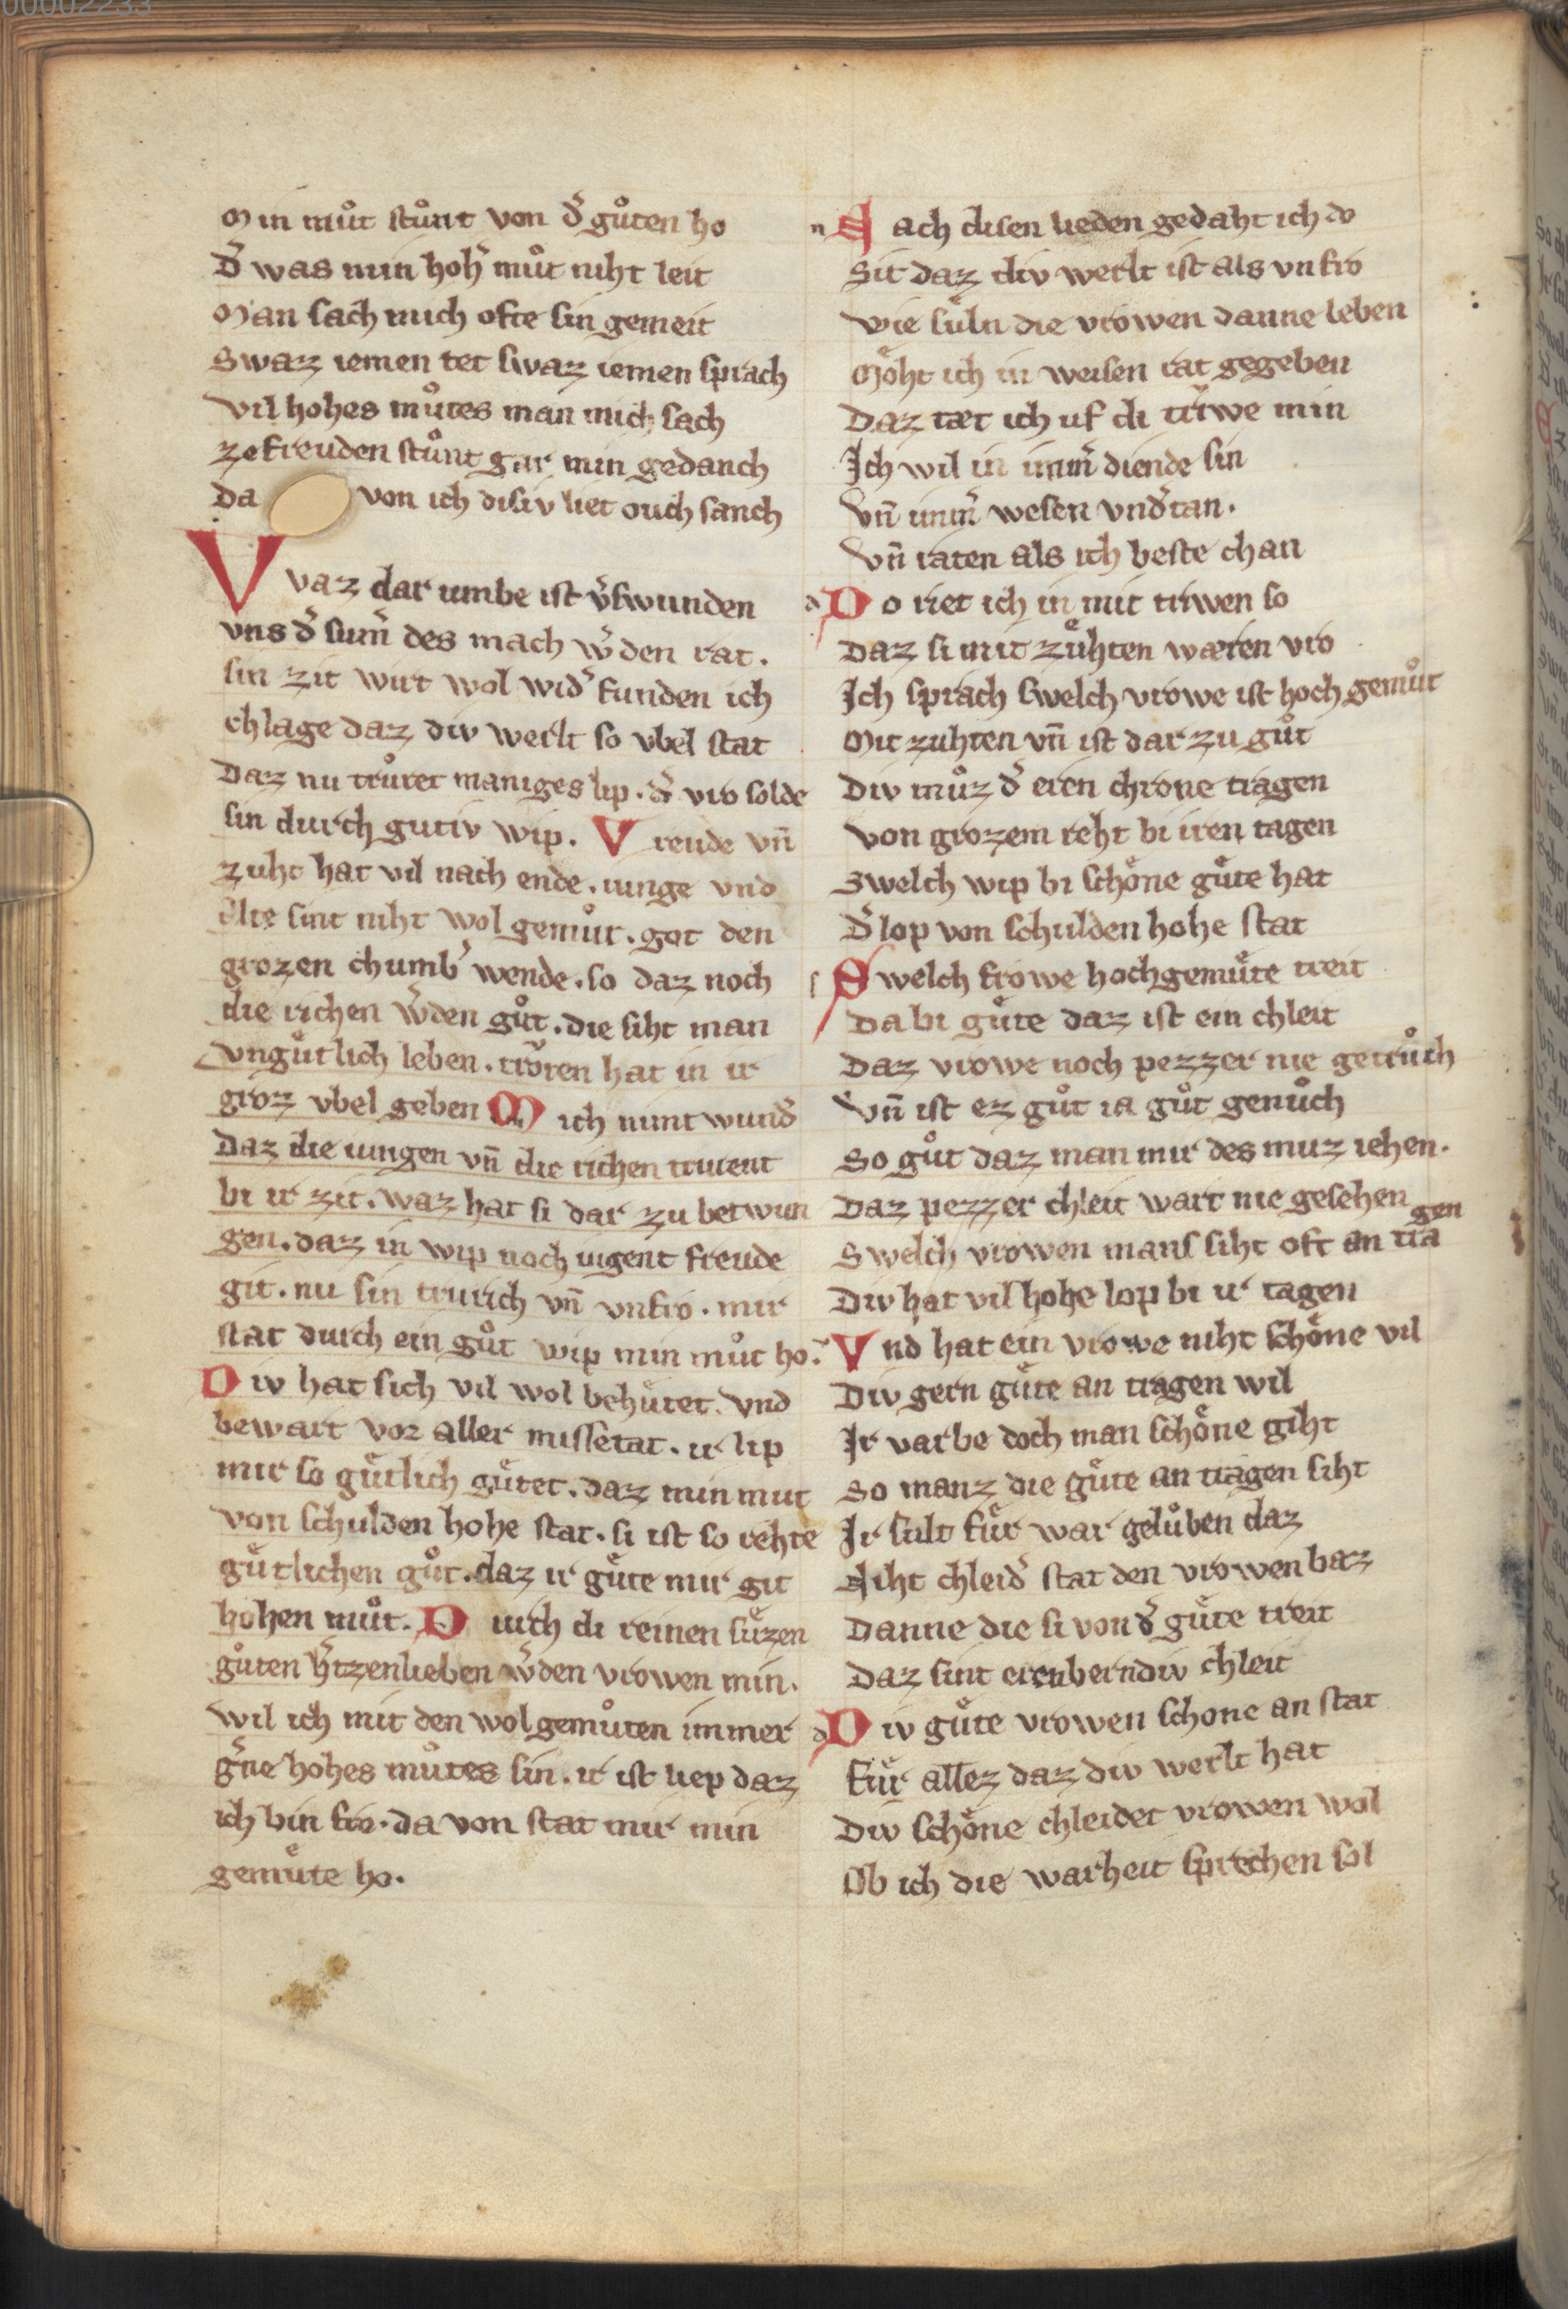 00002233
Min muͦt stuͦnt von d̓ guͦten ho
D̓ was min hoh̓ muͦt niht leit
Man sach mich ofte sin gemeit
Swaz iemen tet swaz iemen sprach
Vil hohes muͦtes man mich sach
ze freuden stuͦnt gar min gedanch
Da von ich disiv liet ouch sanch
Vvaz dar umbe ist v̓swunden
vns d̓ sum̄ des mach w̓den rat.
sin zit wirt wol wid̓ funden ich
chlage daz div werlt so vbel stat
Daz nu truͦret maniges lip. d̓ vro solde
sin durch gutiv wip. Vreude vn̄
zuht hat vil nach ende. iunge vnd
alte sint niht wol gemuͦt. got den
grozen chumb̓ wende. so daz noch
die richen w̓den guͦt. die siht man
vnguͤtlich leben. troͮren hat in ir
groz vbel geben Mich nimt wund̓
Daz die iungen vn̄ die richen trurent
bi ir zit. waz hat si dar zu betwun
gen. daz in wip noch iugent freude
git. nu sin trurich vn̄ vnfro. mir
stat durch ein guͦt wip min muͦt ho.
Div hat sich vil wol behuͤtet. vnd
bewart vor aller missetat. ir lip
mir so guͤtlich guͤtet. daz min mut
von schulden hohe stat. si ist so rehte
guͤtlichen guͦt. daz ir guͤte mir git
hohen muͦt. Durch di reinen suͤzen
guͦten h̓tzenlieben w̓den vrowen min.
wil ich mit den wol gemuͦten immer
g̓ne hohes muͦtes sin. ir ist liep daz
ich bin fro. da von stat mir min
gemuͤte ho.
n Nach disen lieden gedaht ich do
Sit daz div werlt ist als vnfro
wie suͤln die vrowen danne leben
Moͤht ich in weisen rat gegeben
Daz tæt ich uf di triwe min
Ich wil in imm̓ diende sin
Vn̄ imm̓ wesen vnd̓tan.
Vn̄ raten als ich beste chan
d Do riet ich in mit triwen so
Daz si mit zuͤhten wæren vro
Ich sprach swelch vrowe ist hoch gemuͦt
Mit zuhten vn̄ ist dar zu guͦt
Div muͦz d̓ eren chrone tragen
von grozem reht bi iren tagen
Swelch wip bi schoͤne guͤte hat
D̓ lop von schulden hohe stat
s Swelch frowe hochgemuͤte treit
Da bi guͤte daz ist ein chleit
Daz vrowe noch pezzer nie getruͦch
Vn̄ ist ez guͦt ia guͦt genuͦch
So guͦt daz man mir des muz iehen.
Daz pezzer chleit wart nie gesehen
Swelch vrowen mans siht oft an tra gen
Div hat vil hohe lop bi ir tagen
Vnd hat ein vrowe niht schoͤne vil
Div gern guͤte an tragen wil
Ir varbe doch man schoͤne giht
So manz die guͤte an tragen siht
Ir sult fuͤr war geluͦben daz
Niht chleid̓ stat den vrowen baz
Danne die si von d̓ guͤte treit
Daz sint erenberndiv chleit
d Div guͤte vrowen schone an stat
Fuͤr allez daz div werlt hat
Div schoͤne chleidet vrowen wol
Ob ich die warheit sprechen sol